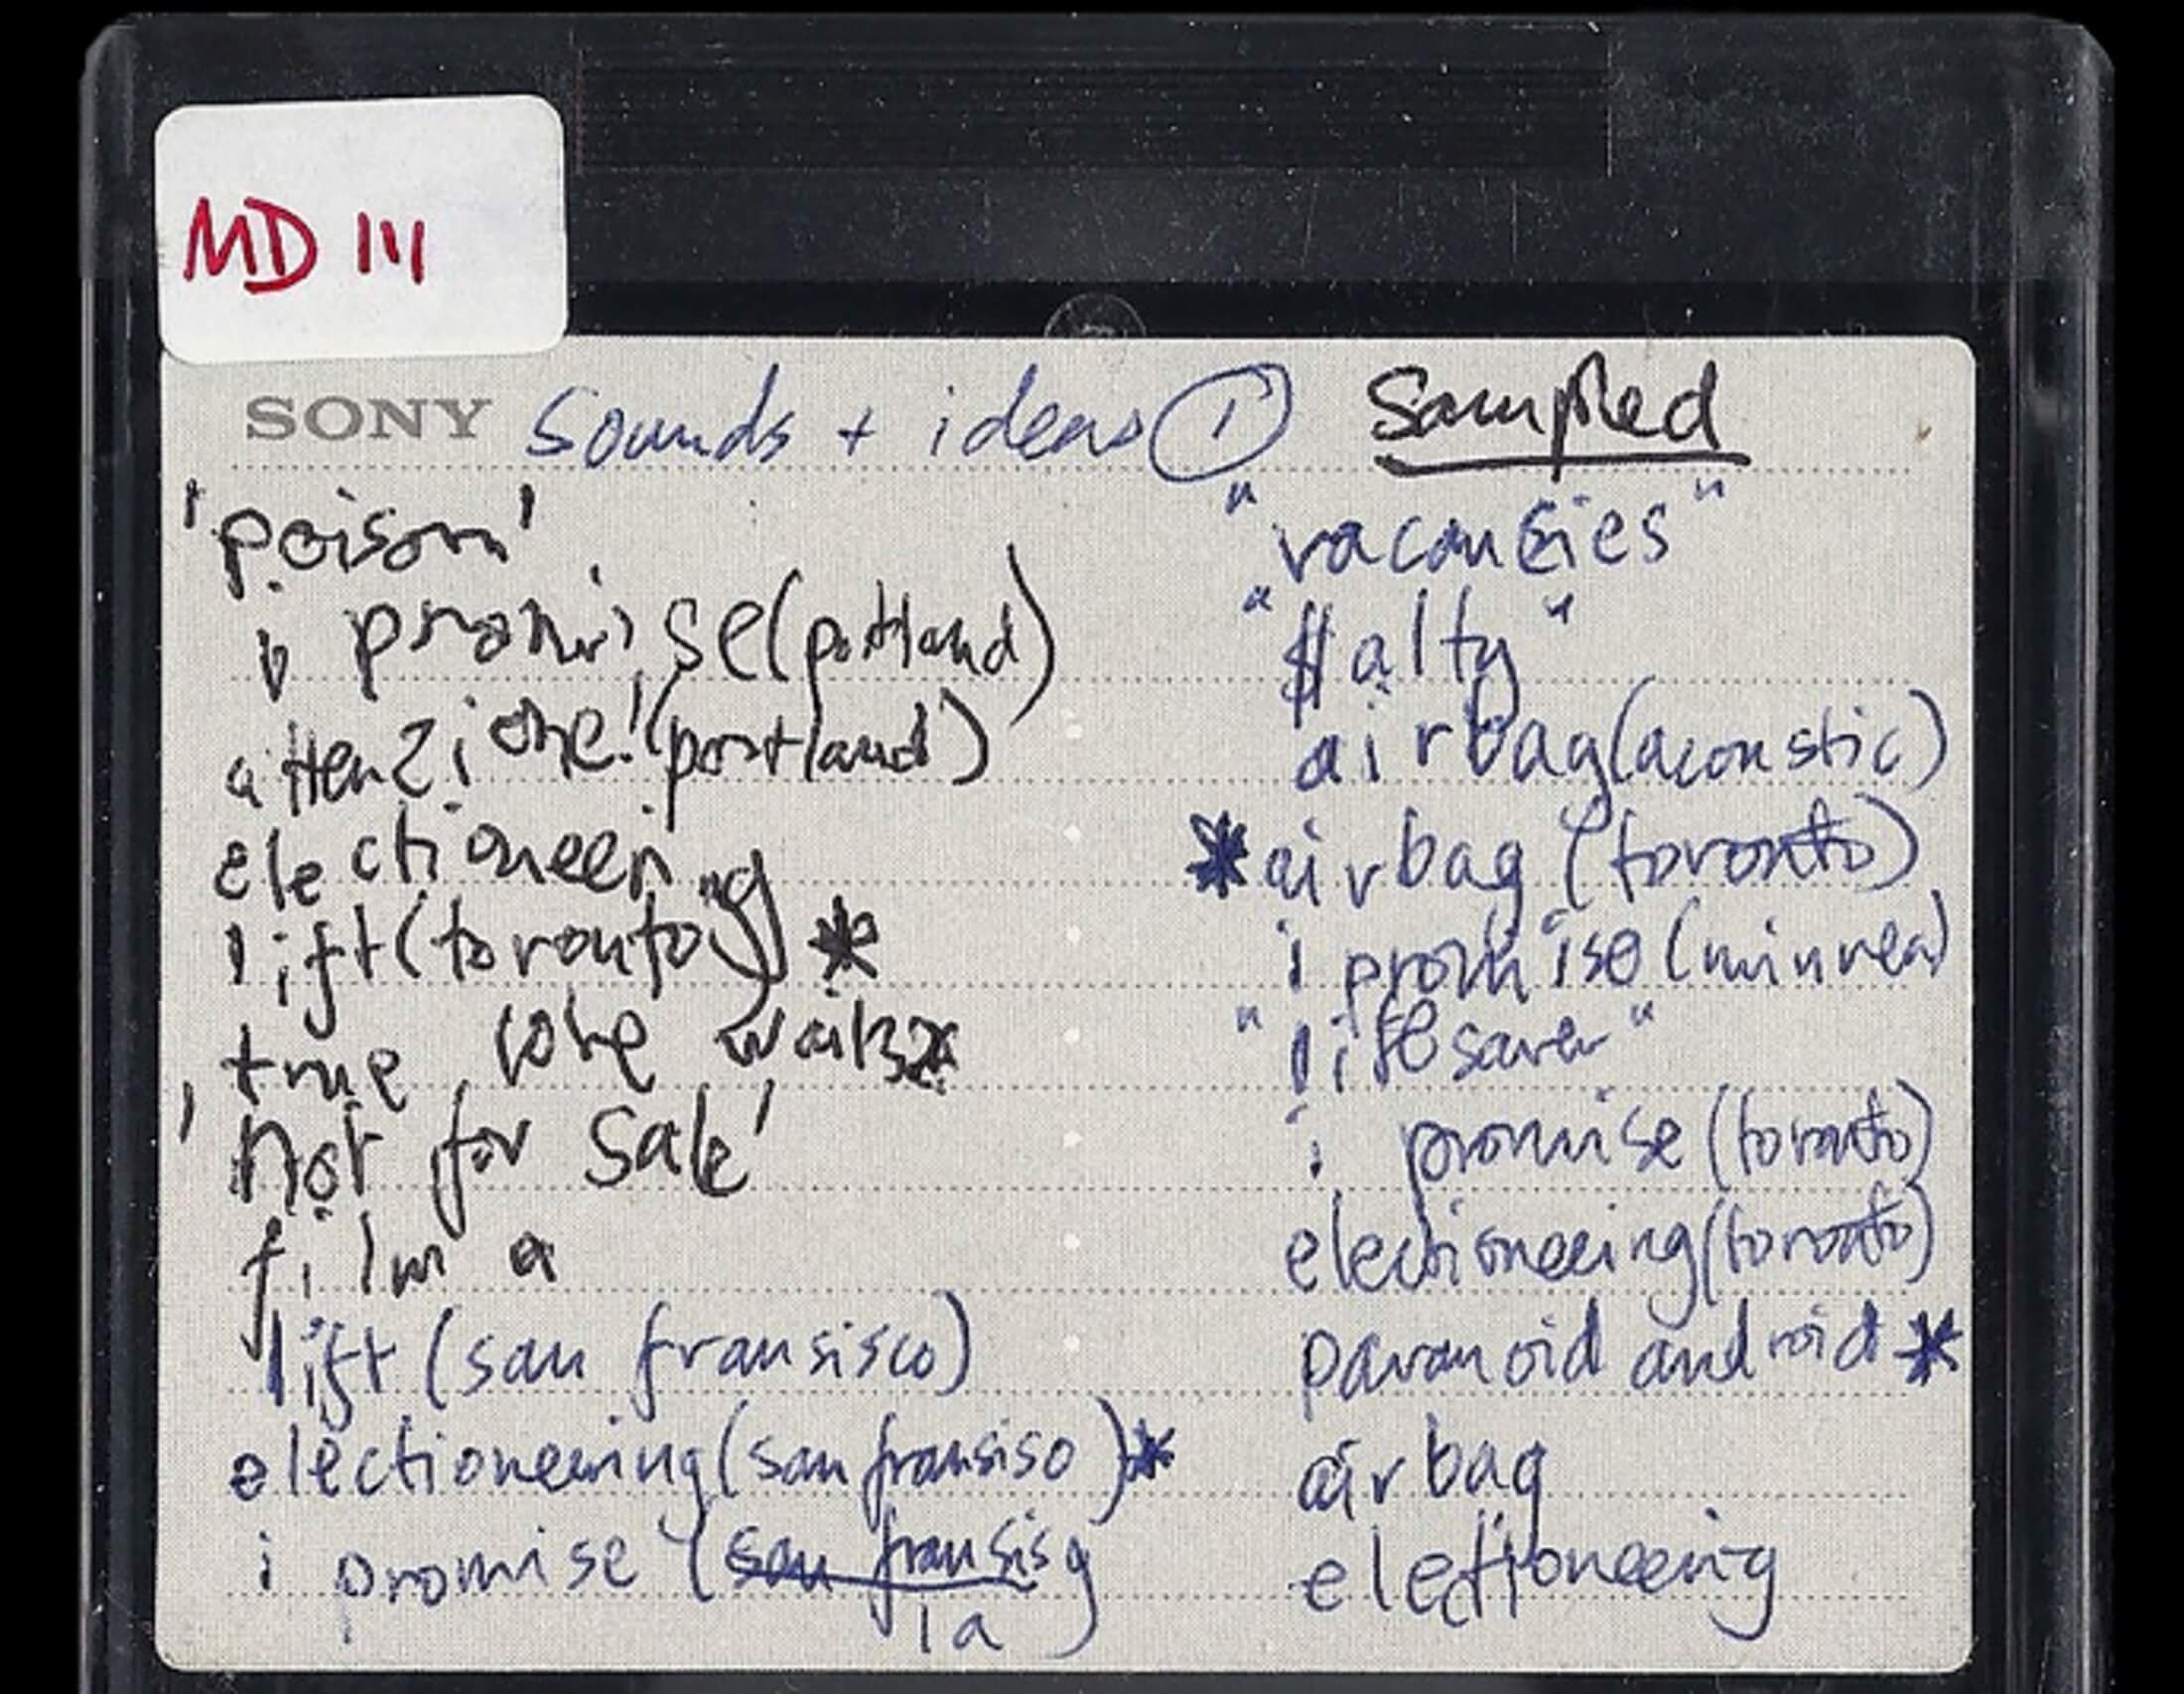 MD 111
SONY sounds + ideas ① sampled
'poison'
i promise (portland)
attenzione! (portland)
electioneering
lift (toronto) *
true love waits *
'not for sale'
film a
lift (san fransisco)
electioneering (san fransiso) *
i promise (san fransis
la)
"vacansies"
"salty"
airbag (acoustic)
* airbag (toronto)
i promise (minnea)
"lifesaver"
i promise (toronto)
electioneering (toronto)
paranoid android *
airbag
electioneering